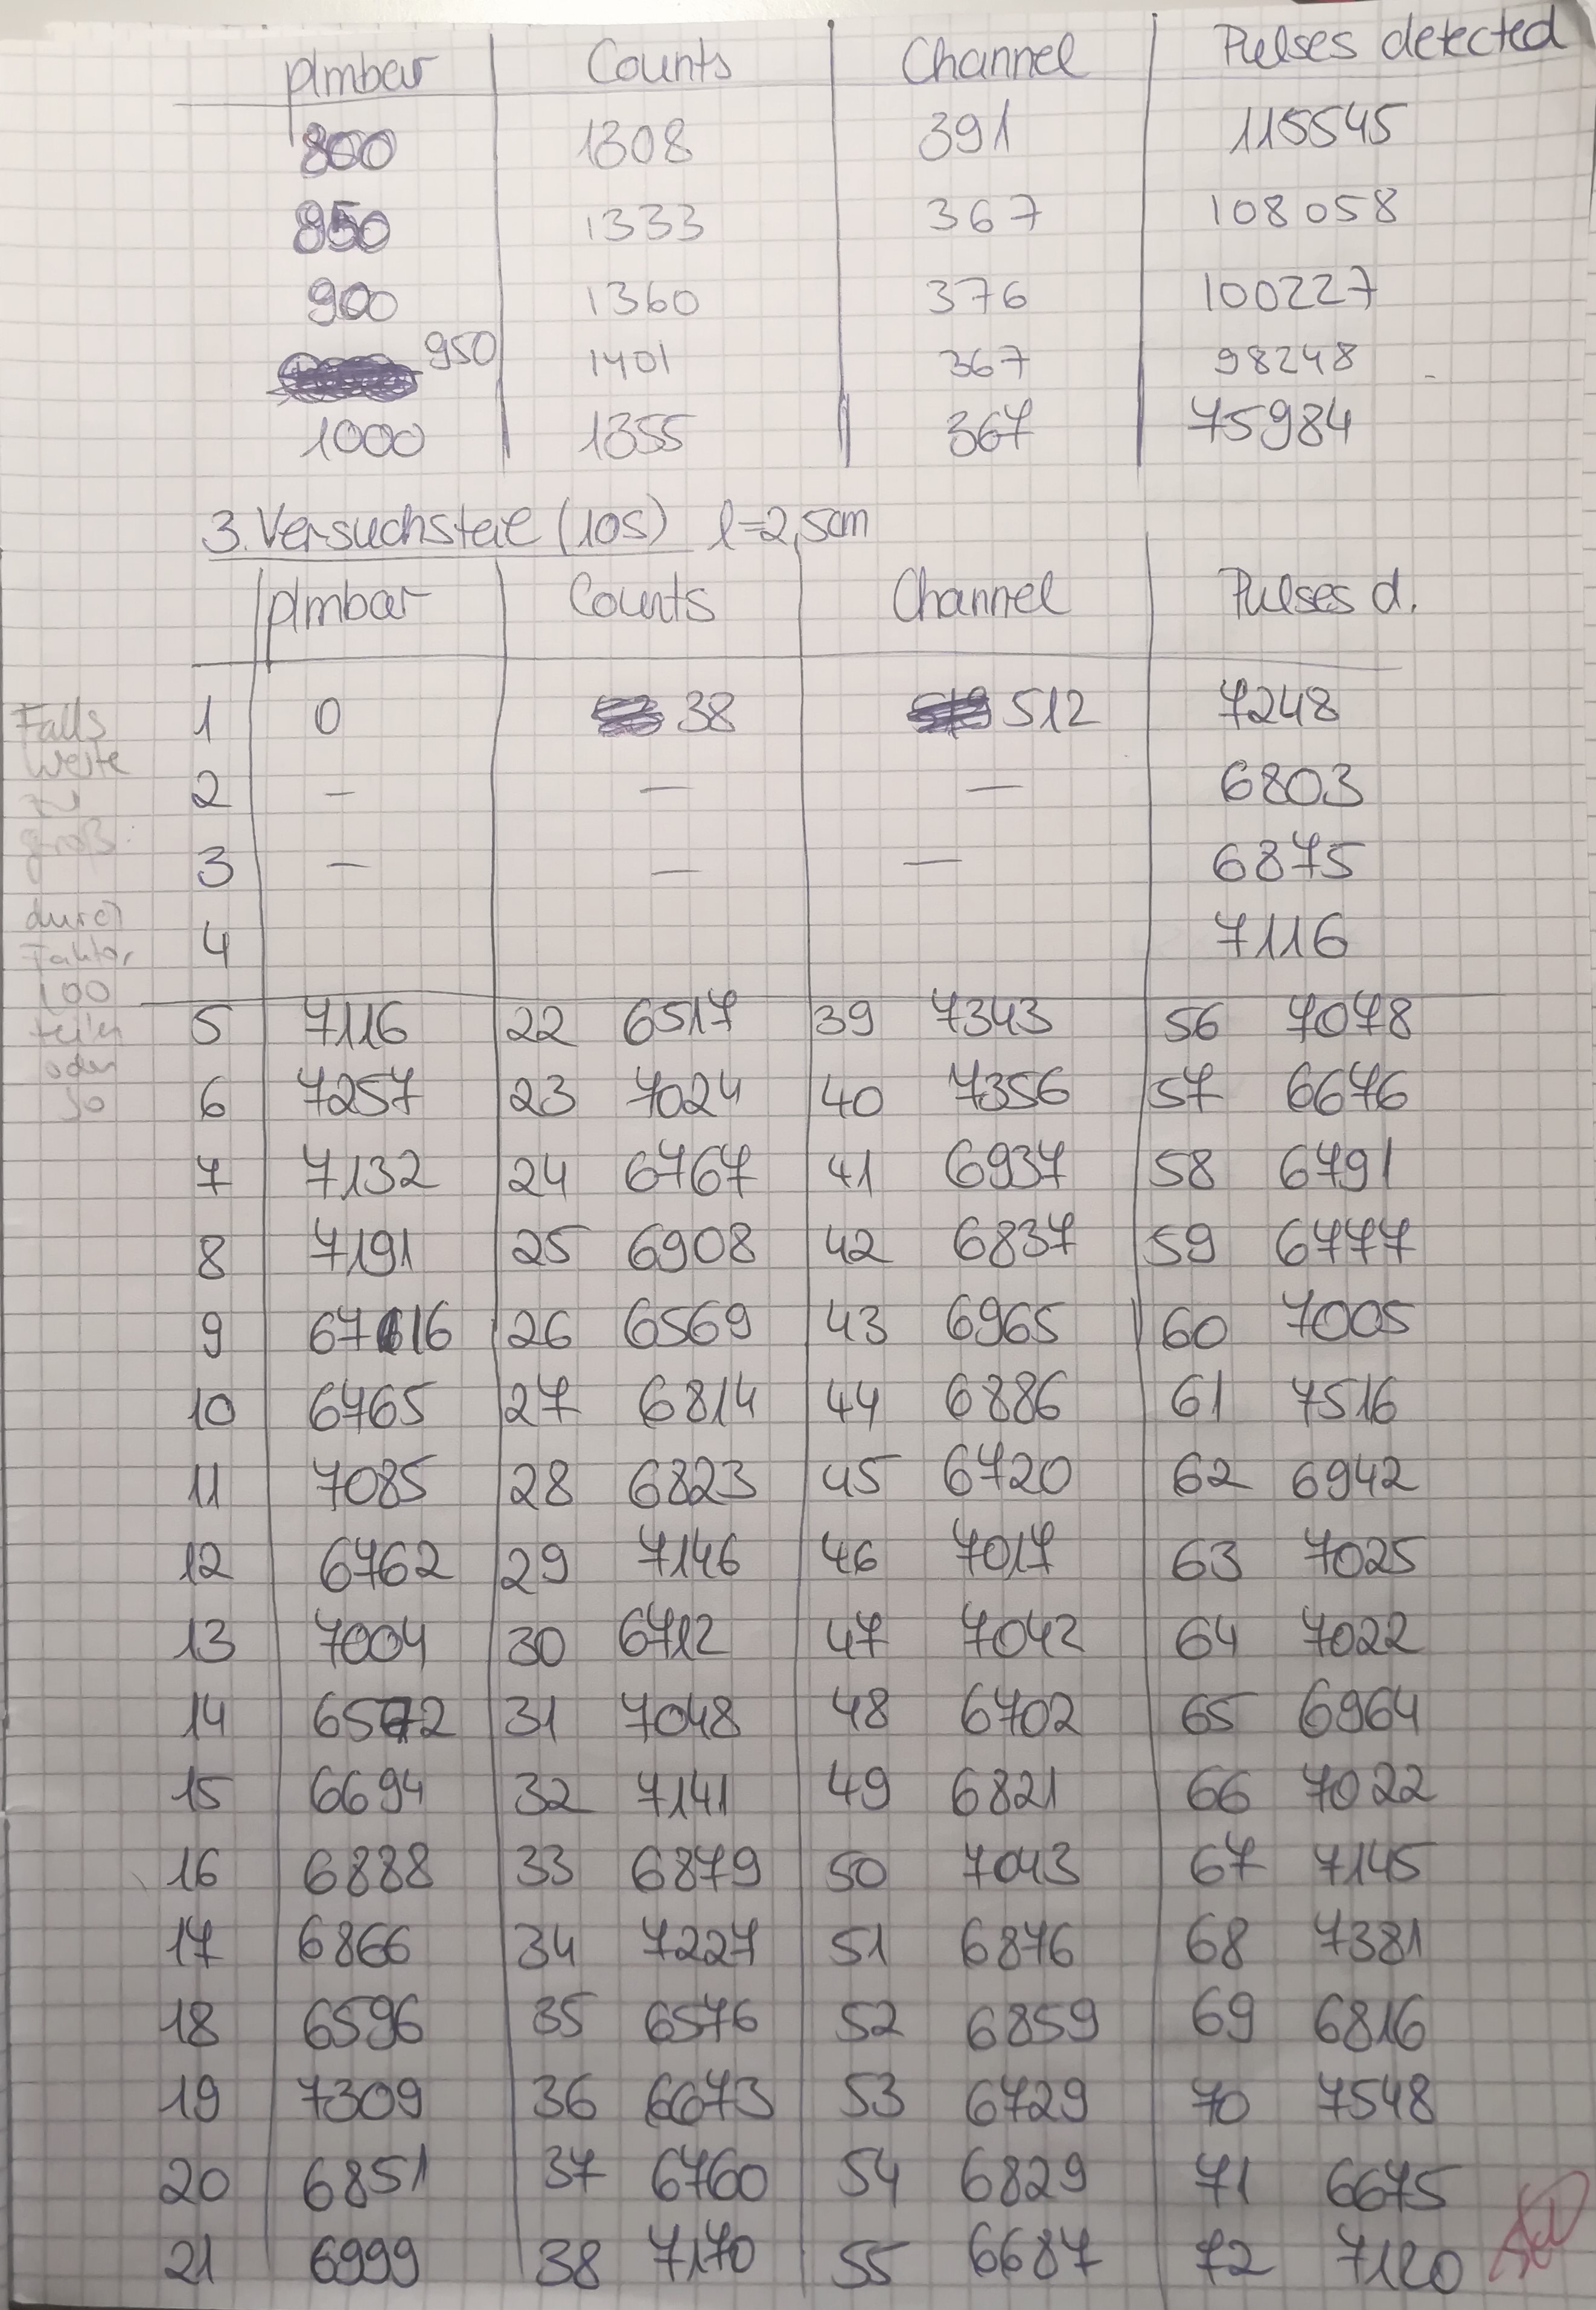 p/mbar Counts Channel Pulses detected
800 1308 391 115545
850 1333 367 108058
900 1360 376 100227
950 1401 367 98248
1000 1355 367 75984
3. Versuchsteil (10s) l=2,5cm
p/mbar Counts Channel Pulses d.
1 0 38 512 7248
2 – – – 6803
3 – – – 6875
4 7116
5 7116 22 6517 39 7343 56 7078
6 7257 23 7024 40 7356 57 6676
7 7132 24 6767 41 6937 58 6791
8 7191 25 6908 42 6837 59 6777
9 26 6569 43 6965 60 7005
10 6765 27 6814 44 6886 61 7516
11 7085 28 6823 45 6720 62 6942
12 6762 29 7146 46 7017 63 7025
13 7004 30 6712 47 7042 64 7022
14 6572 31 7048 48 6702 65 6964
15 6694 32 7141 49 6821 66 7022
16 6888 33 6879 50 7043 67 7145
17 6866 34 7227 51 6876 68 7381
18 6596 35 6576 52 6859 69 6816
19 7309 36 6673 53 6729 70 7548
20 6851 37 6760 54 6829 71 6675
21 6999 38 7170 55 6687 72 7120
Falls
Werte
zu
groß:
durch
Faktor
100
teilen
oder
so